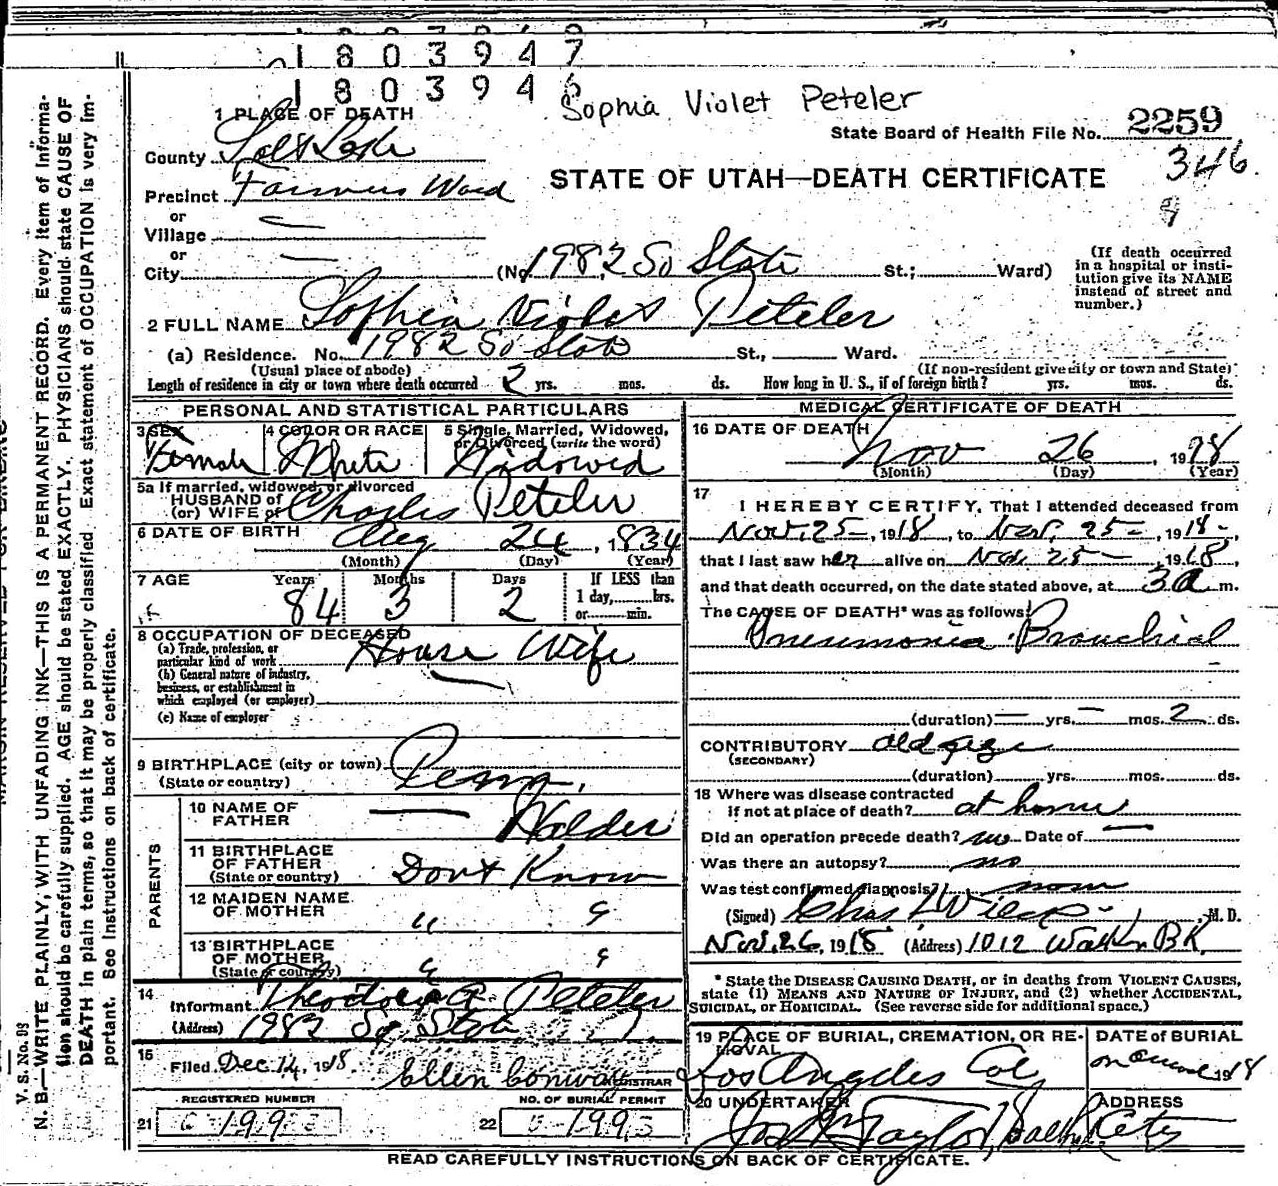 1803947
1803946
Sophia Violet Peteler
1 PLACE OF DEATH
State Board of Health File No. 2259
County Salt Lake
346
STATE OF UTAH—DEATH CERTIFICATE
Precinct Farmers Ward
or
Village
or
City (No. 1982 So State St.; Ward)
(If death occurred in a hospital or institution give its NAME instead of street and number.)
2 FULL NAME Sophia Violet Peteler
(a) Residence. No. 1982 So State St., Ward.
(Usual place of abode) (If non-resident give city or town and State)
Length of residence in city or town where death occurred 2 yrs. mos. ds. How long in U. S., if of foreign birth? yrs. mos. ds.
PERSONAL AND STATISTICAL PARTICULARS
3 SEX Female
4 COLOR OR RACE White
5 Single, Married, Widowed, or Divorced (write the word) Widowed
5a If married, widowed, or divorced
HUSBAND of
(or) WIFE of Charles Peteler
6 DATE OF BIRTH Aug 24, 1834
(Month) (Day) (Year)
7 AGE Years 84 Months 3 Days 2 If LESS than 1 day, hrs. or min.
8 OCCUPATION OF DECEASED
(a) Trade, profession, or particular kind of work House Wife
(b) General nature of industry, business, or establishment in which employed (or employer)
(c) Name of employer
9 BIRTHPLACE (city or town)
(State or country) Penn.
PARENTS
10 NAME OF FATHER Walder
11 BIRTHPLACE OF FATHER
(State or country) Dont Know
12 MAIDEN NAME OF MOTHER " "
13 BIRTHPLACE OF MOTHER
(State or country) " "
14 Informant Theodore A. Peteler
(Address) 1982 So State
15 Filed Dec 14, 1918. Ellen Conway REGISTRAR
REGISTERED NUMBER NO. OF BURIAL PERMIT
21 22
MEDICAL CERTIFICATE OF DEATH
16 DATE OF DEATH
Nov 26, 1918
(Month) (Day) (Year)
17 I HEREBY CERTIFY, That I attended deceased from
Nov. 25—, 1918, to Nov. 25—, 1918
that I last saw her alive on Nov. 25—, 1918,
and that death occurred, on the date stated above, at 3 a m.
The CAUSE OF DEATH* was as follows:
Pneumonia Bronchial
(duration) — yrs. — mos. 2 ds.
CONTRIBUTORY old age
(SECONDARY)
(duration) yrs. mos. ds.
18 Where was disease contracted
if not at place of death? at home
Did an operation precede death? no Date of —
Was there an autopsy? no
Was test confirmed diagnosis? none
(Signed) Chas, M.D.
Nov. 26, 1918 (Address) 1012 Walker BK
* State the DISEASE CAUSING DEATH, or in deaths from VIOLENT CAUSES,
state (1) MEANS AND NATURE OF INJURY, and (2) whether ACCIDENTAL,
SUICIDAL, or HOMICIDAL. (See reverse side for additional space.)
19 PLACE OF BURIAL, CREMATION, OR REMOVAL Los Angeles Cal
DATE OF BURIAL on 1918
20 UNDERTAKER Jos Wm Taylor
ADDRESS Salt Lake City
READ CAREFULLY INSTRUCTIONS ON BACK OF CERTIFICATE.
V. S. No. 08
N. B.—WRITE PLAINLY, WITH UNFADING INK—THIS IS A PERMANENT RECORD. Every item of information should be carefully supplied. AGE should be stated EXACTLY. PHYSICIANS should state CAUSE OF DEATH in plain terms, so that it may be properly classified. Exact statement of OCCUPATION is very important. See Instructions on back of certificate.